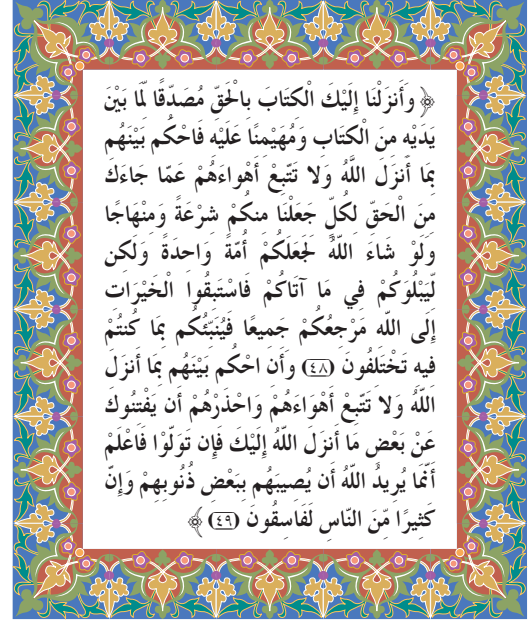 ﴿ وَأَنزَلْنَا إِلَيْكَ الْكِتَابَ بِالْحَقِّ مُصَدِّقًا لِّمَا بَيْنَ
يَدَيْهِ مِنَ الْكِتَابِ وَمُهَيْمِنًا عَلَيْهِ فَاحْكُم بَيْنَهُم
بِمَا أَنزَلَ اللَّهُ وَلا تَتَّبِعْ أَهْوَاءَهُمْ عَمَّا جَاءَكَ
مِنَ الْحَقِّ لِكُلٍّ جَعَلْنَا مِنكُمْ شِرْعَةً وَمِنْهَاجًا
وَلَوْ شَاءَ اللَّهُ لَجَعَلَكُمْ أُمَّةً وَاحِدَةً وَلَكِن
لِّيَبْلُوَكُمْ فِي مَا آتَاكُمْ فَاسْتَبِقُوا الْخَيْرَاتِ
إِلَى اللَّهِ مَرْجِعُكُمْ جَمِيعًا فَيُنَبِّئُكُم بِمَا كُنتُمْ
فِيهِ تَخْتَلِفُونَ (٤٨) وَأَنِ احْكُم بَيْنَهُم بِمَا أَنزَلَ
اللَّهُ وَلا تَتَّبِعْ أَهْوَاءَهُمْ وَاحْذَرْهُمْ أَن يَفْتِنُوكَ
عَنْ بَعْضِ مَا أَنزَلَ اللَّهُ إِلَيْكَ فَإِن تَوَلَّوْا فَاعْلَمْ
أَنَّمَا يُرِيدُ اللَّهُ أَن يُصِيبَهُم بِبَعْضِ ذُنُوبِهِمْ وَإِنَّ
كَثِيرًا مِّنَ النَّاسِ لَفَاسِقُونَ (٤٩) ﴾